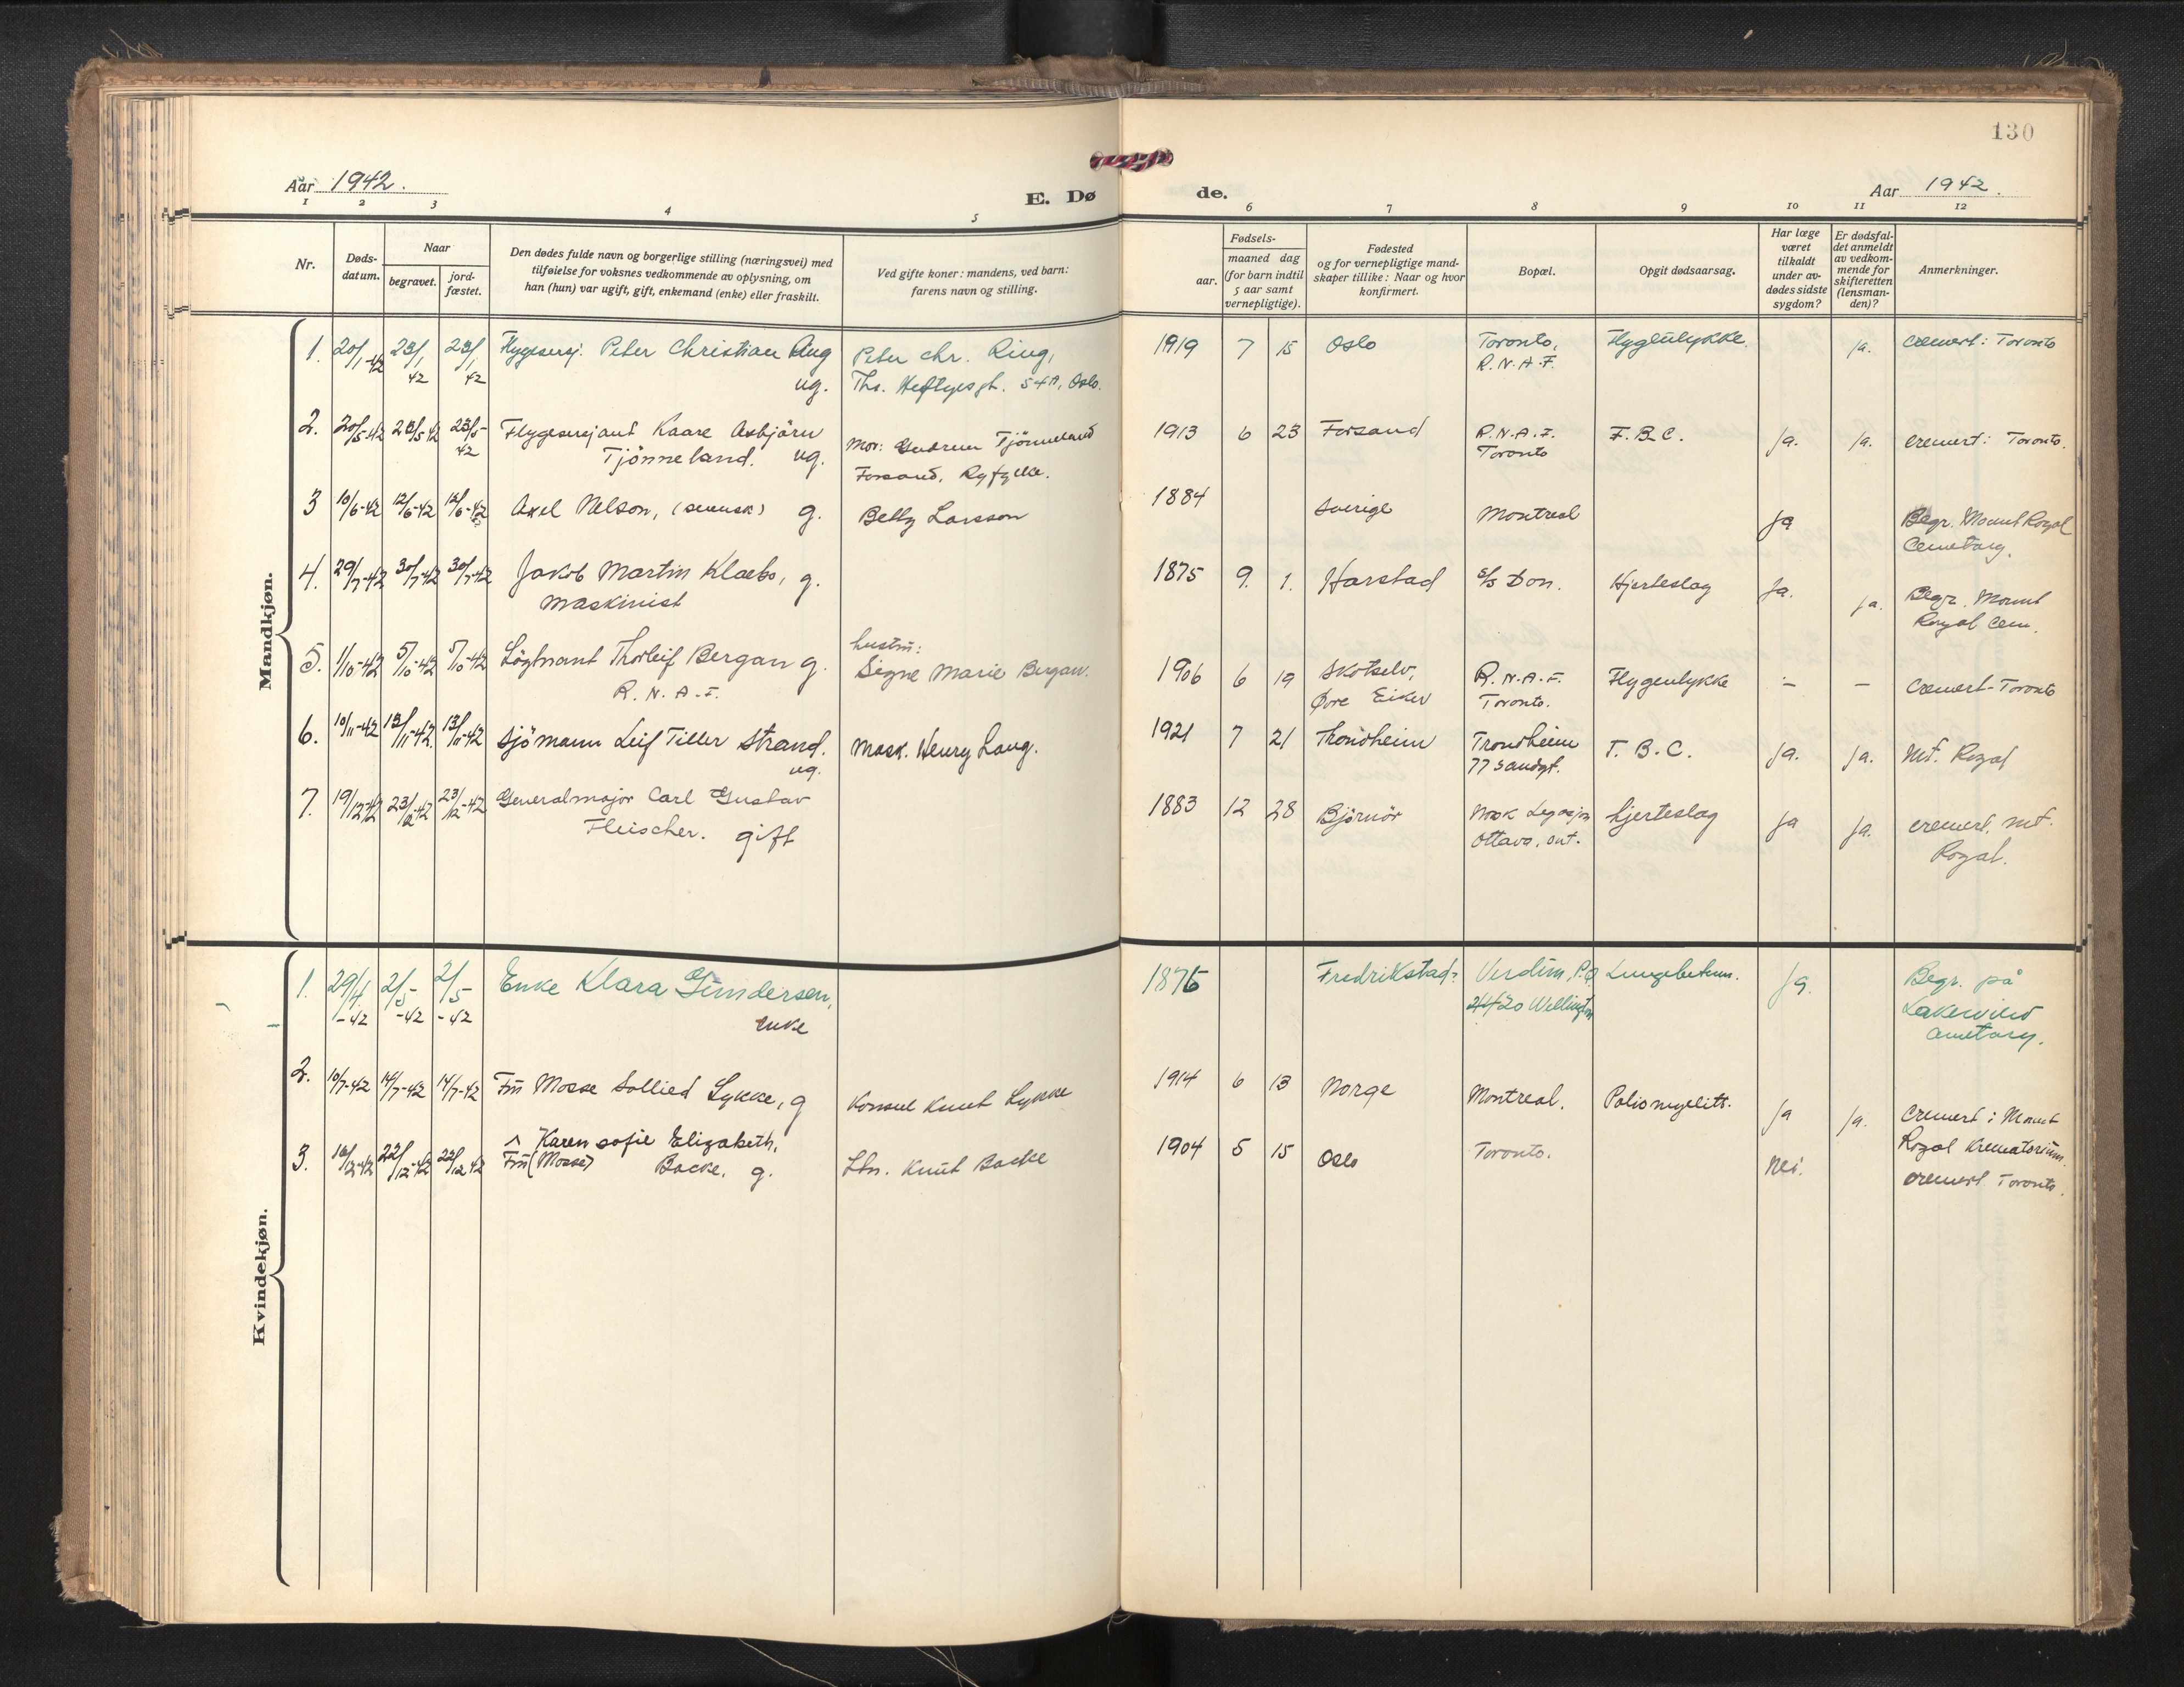 130
Aar 1942.
E. Dø
de.
Aar 1942.
1 2 3 4 5 6 7 8 9 10 11 12
Nr.
Døds-
datum.
Naar
begravet.
jord-
fæstet.
Den dødes fulde navn og borgerlige stilling (næringsvei) med
tilføielse for voksnes vedkommende av oplysning, om
han (hun) var ugift, gift, enkemand (enke) eller fraskilt.
Ved gifte koner: mandens, ved barn:
farens navn og stilling.
Fødsels-
aar.
maaned dag
(for barn indtil
5 aar samt
vernepligtige).
Fødested
og for vernepligtige mand-
skaper tillike: Naar og hvor
konfirmert.
Bopæl.
Opgit dødsaarsag.
Har læge
været
tilkaldt
under av-
dødes sidste
sygdom?
Er dødsfal-
det anmeldt
av vedkom-
mende for
skifteretten
(lensman-
den)?
Anmerkninger.
Mandkjøn.
1. 20/1-42 23/1 42 23/1 42 Flygesersj. Peter Christian Ring Peter Chr. Ring, 1919 7 15 Oslo Toronto, Flygeulykke. ja. cremert: Toronto
ug. Ths. Heftyesgt. 54A, Oslo. R.N.A.F.
2. 20/5-42 23/5 42 23/5-42 Flygesersjant Kaare Asbjörn Mor: Gudrun Tjönneland 1913 6 23 Forsand R.N.A.F. T.B.C. ja. ja. cremert: Toronto.
Tjönneland. ug. Forsand, Ryfylke. Toronto
3 10/6-42 12/6-42 12/6-42 Axel Nelson, (svensk) g. Betty Larsson 1884 Sverige Montreal ja Begr. Mount Royal
Cemetary.
4. 29/7-42 30/7-42 30/7-42 Jakob Martin Klaebo, g. 1875 9. 1. Harstad S/S Don. Hjerteslag Ja. ja. Begr. Mount
maskinist Royal Cem.
5. 1/10-42 5/10-42 5/10-42 Löytnant Thorleif Bergan g. hustru: 1906 6 19 Skotselv, R.N.A.F. Flygeulykke - - Cremert-Toronto
R.N.A.F. Signe Marie Bergan. Øvre Eiker Toronto.
6. 10/11-42 13/11-42 13/11-42 Sjömann Leif Tiller Strand. Mask. Henry Laug. 1921 7 21 Trondheim Trondheim T.B.C. ja. ja. Mt. Royal
ug. 77 Sandgt.
7. 19/12-42 23/12-42 23/12-42 Generalmajor Carl Gustav 1883 12 28 Björnör Norsk Legasjon hjerteslag ja ja. cremert. Mt.
Fleischer. gift Ottawa, Ont. Royal.
Kvindekjøn.
1. 29/4-42 2/5-42 2/5-42 Enke Klara Gundersen, 1876 Fredrikstad? Verdun, P.Q. Lungebeten. Ja. Begr. på
enke 4420 Wellington Lakeview
Cemetary.
2. 10/7-42 14/7-42 14/7-42 Fru Mosse Sollied Lykke, g Konsul Knut Lykke 1914 6 13 Norge Montreal. Poliomyelitt. ja ja. Cremert i Mount
Royal Krematorium.
3. 16/12-42 22/12-42 22/12 42 Karen Sofie Elizabeth,
Fru (Mosse) Backe. g. Ltn. Knut Backe 1904 5 15 Oslo Toronto. Nei. cremert Toronto.